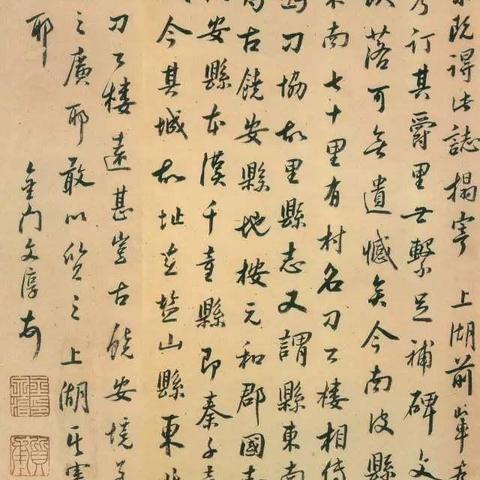 既得此誌搨寄上湖前輩
乃訂其爵里世繫足補碑文
落可無遺憾矣今南皮縣
東南七十里有村名刀公樓相傳
刀協故里縣志又謂縣東南
古饒安縣地按元和郡國
安縣本漢千童縣即秦千
今其城故址在鹽山縣東
刀公樓遠甚豈古饒安境
之廣耶敢以質之上湖
耶
金門文淳